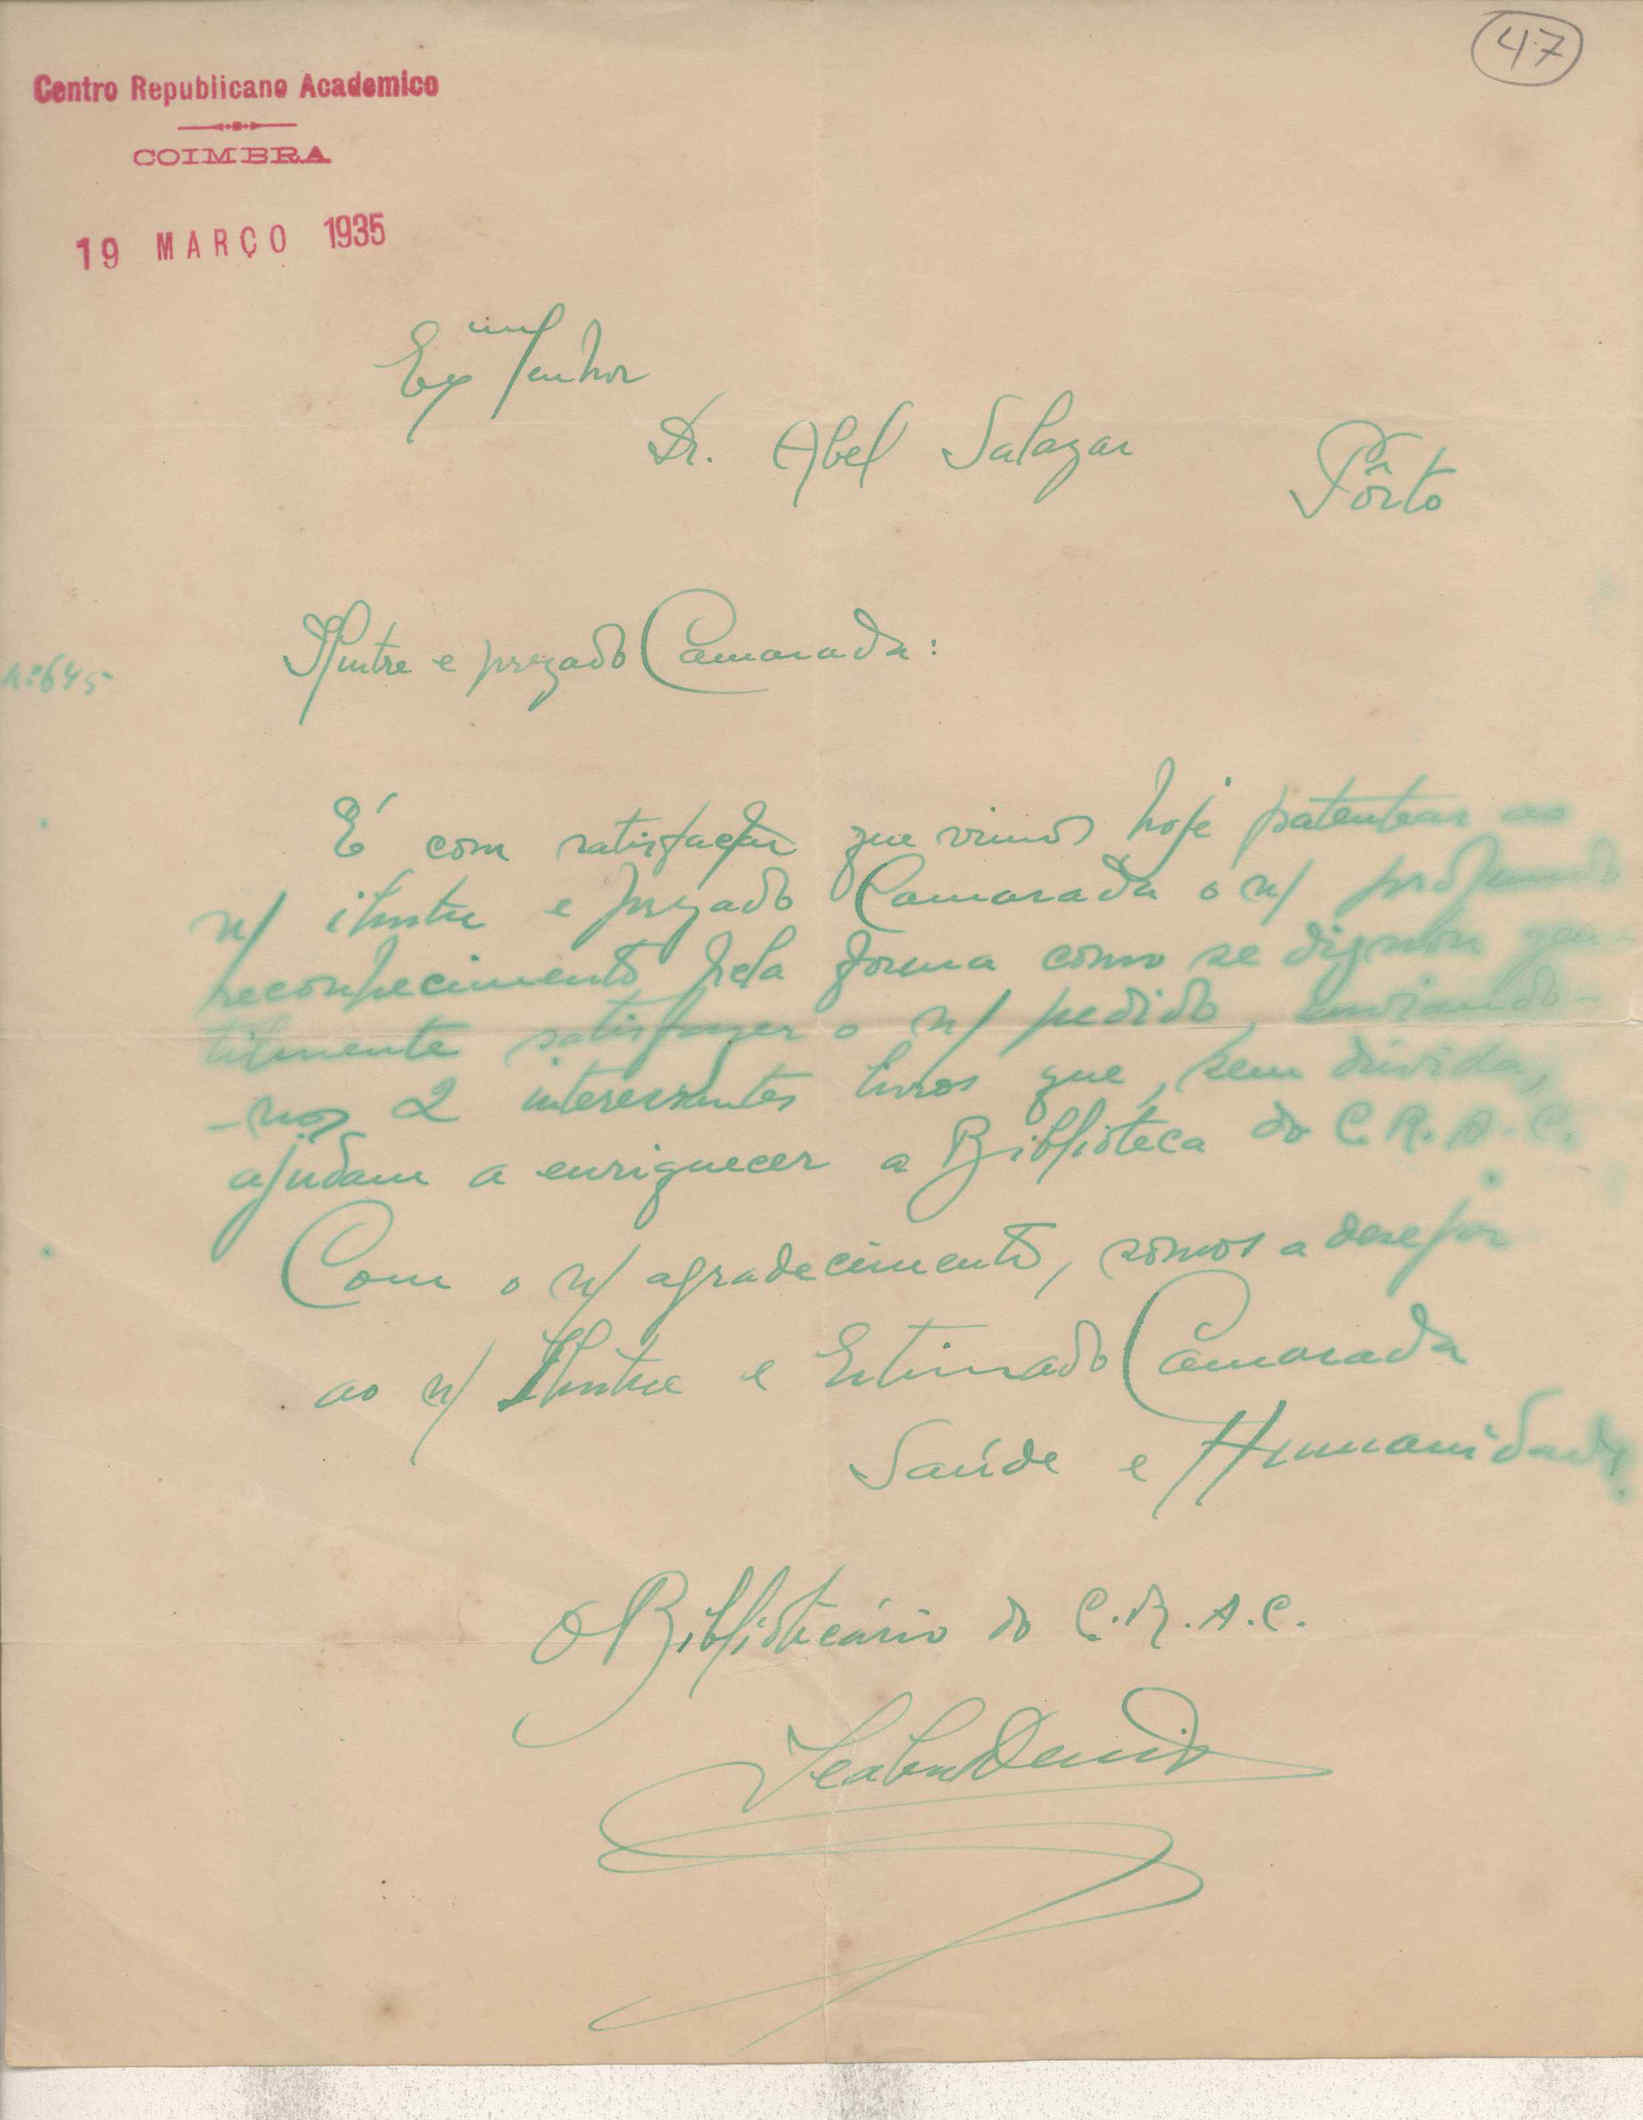 47
Centro Republicano Academico
COIMBRA
19 MARÇO 1935
Exmo Senhor
Dr. Abel Salazar
Pôrto
Ilustre e prezado Camarada:
Nº 645
É com satisfação que vimos hoje patentear ao
n/ ilustre e prezado Camarada o n/ profundo
reconhecimento pela forma como se dignou gen-
tilmente satisfazer o n/ pedido, enviando-
-nos 2 interessantes livros que, sem dúvida,
ajudam a enriquecer a Biblioteca do C.R.A.C.
Com o n/ agradecimento, somos a desejar
ao n/ Ilustre e Estimado Camarada
Saúde e Humanidade.
O Bibliotecário do C.R.A.C.